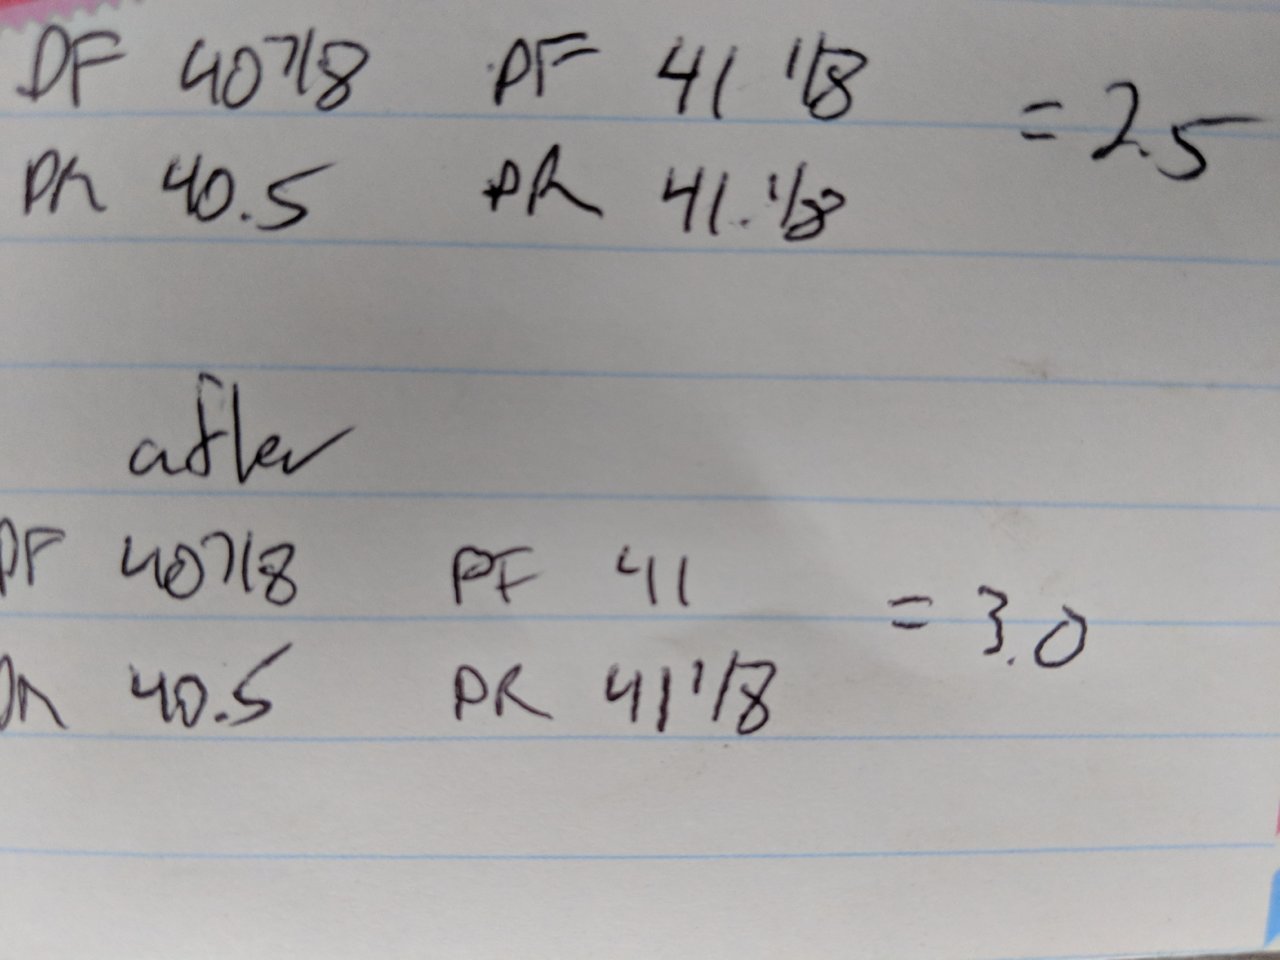 DF 40 7/8 PF 41 1/8 = 2.5
DR 40.5 PR 41.1/8
after
DF 40 7/8 PF 41 = 3.0
DR 40.5 PR 41 1/8